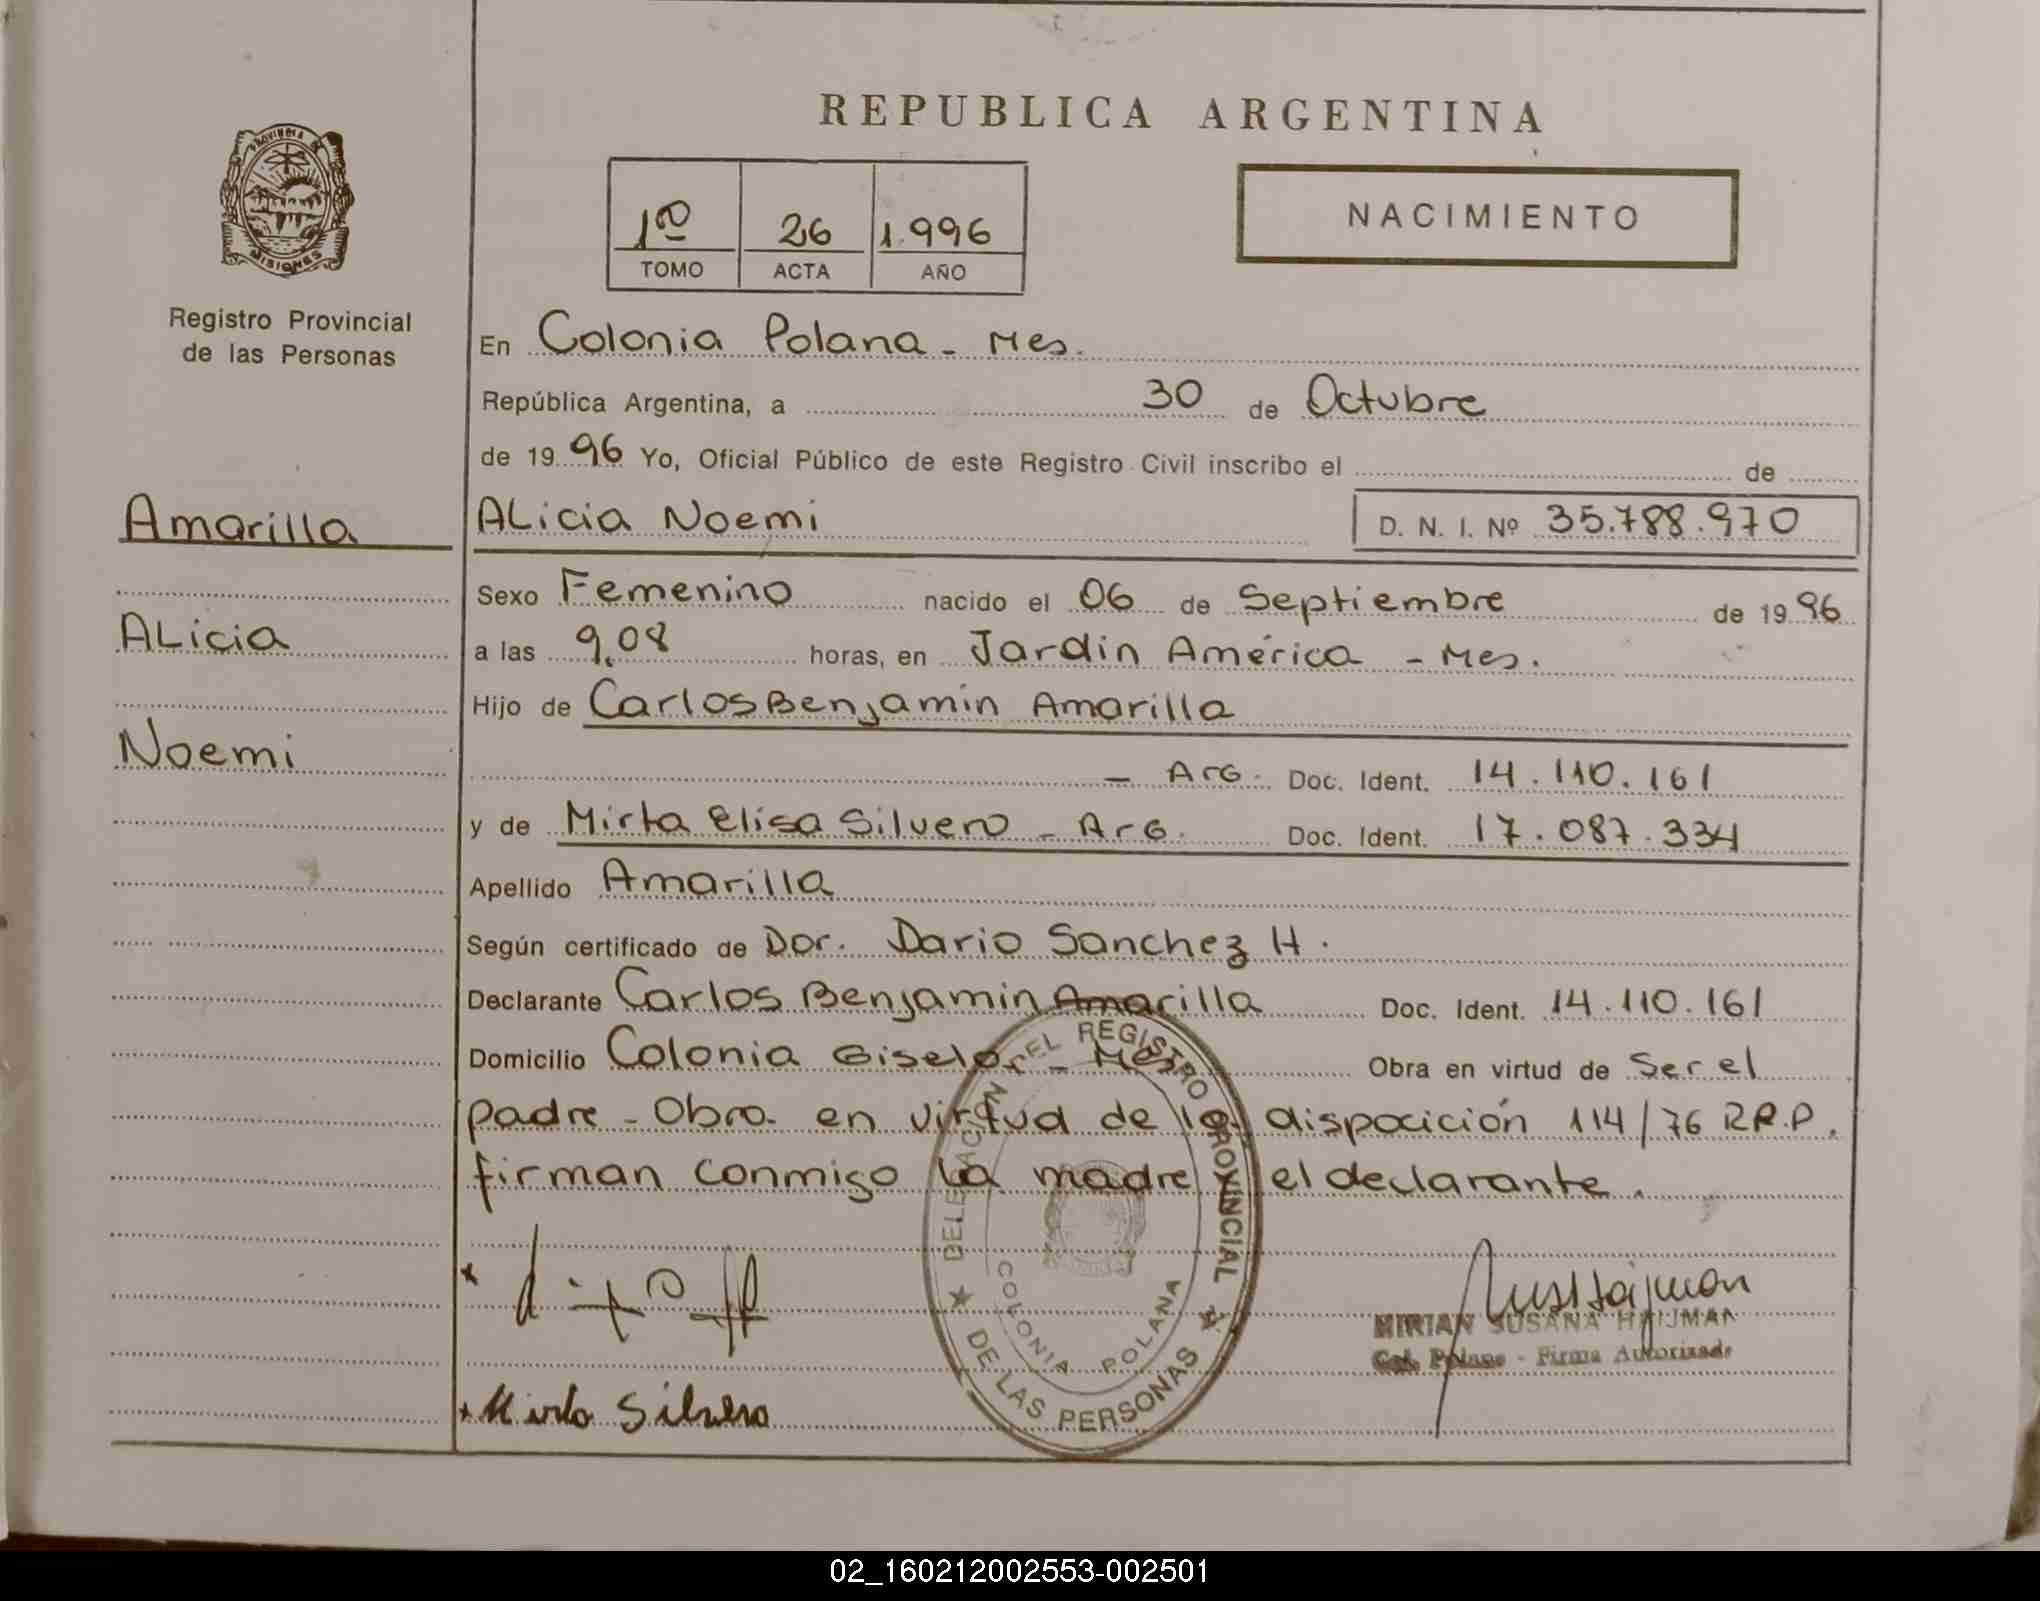 REPUBLICA ARGENTINA
PROVINCIA DE
MISIONES
Registro Provincial
de las Personas
1º 26 1.996
TOMO ACTA AÑO
NACIMIENTO
En Colonia Polana - Mes.
República Argentina, a 30 de Octubre
de 1996 Yo, Oficial Público de este Registro Civil inscribo el de
Amarilla
Alicia
Noemi
Alicia Noemi D. N. I. Nº 35.788.970
Sexo Femenino nacido el 06 de Septiembre de 1996
a las 9,08 horas, en Jardin América - Mes.
Hijo de Carlos Benjamín Amarilla
- Arg. Doc. Ident. 14.110.161
y de Mirta Elisa Silvero - Arg. Doc. Ident. 17.087.334
Apellido Amarilla
Según certificado de Dor. Dario Sanchez H.
Declarante Carlos Benjamin Amarilla Doc. Ident. 14.110.161
Domicilio Colonia Gisela - Mes Obra en virtud de Ser el
padre - Obra en virtud de la disposición 114/76 R.R.P.
firman conmigo la madre y el declarante.
DELEGACION DEL REGISTRO PROVINCIAL
DE LAS PERSONAS
COLONIA POLANA
MIRIAN SUSANA HAIJMAN
Col. Polana - Firma Autorizada
Mirta Silvero
02_160212002553-002501